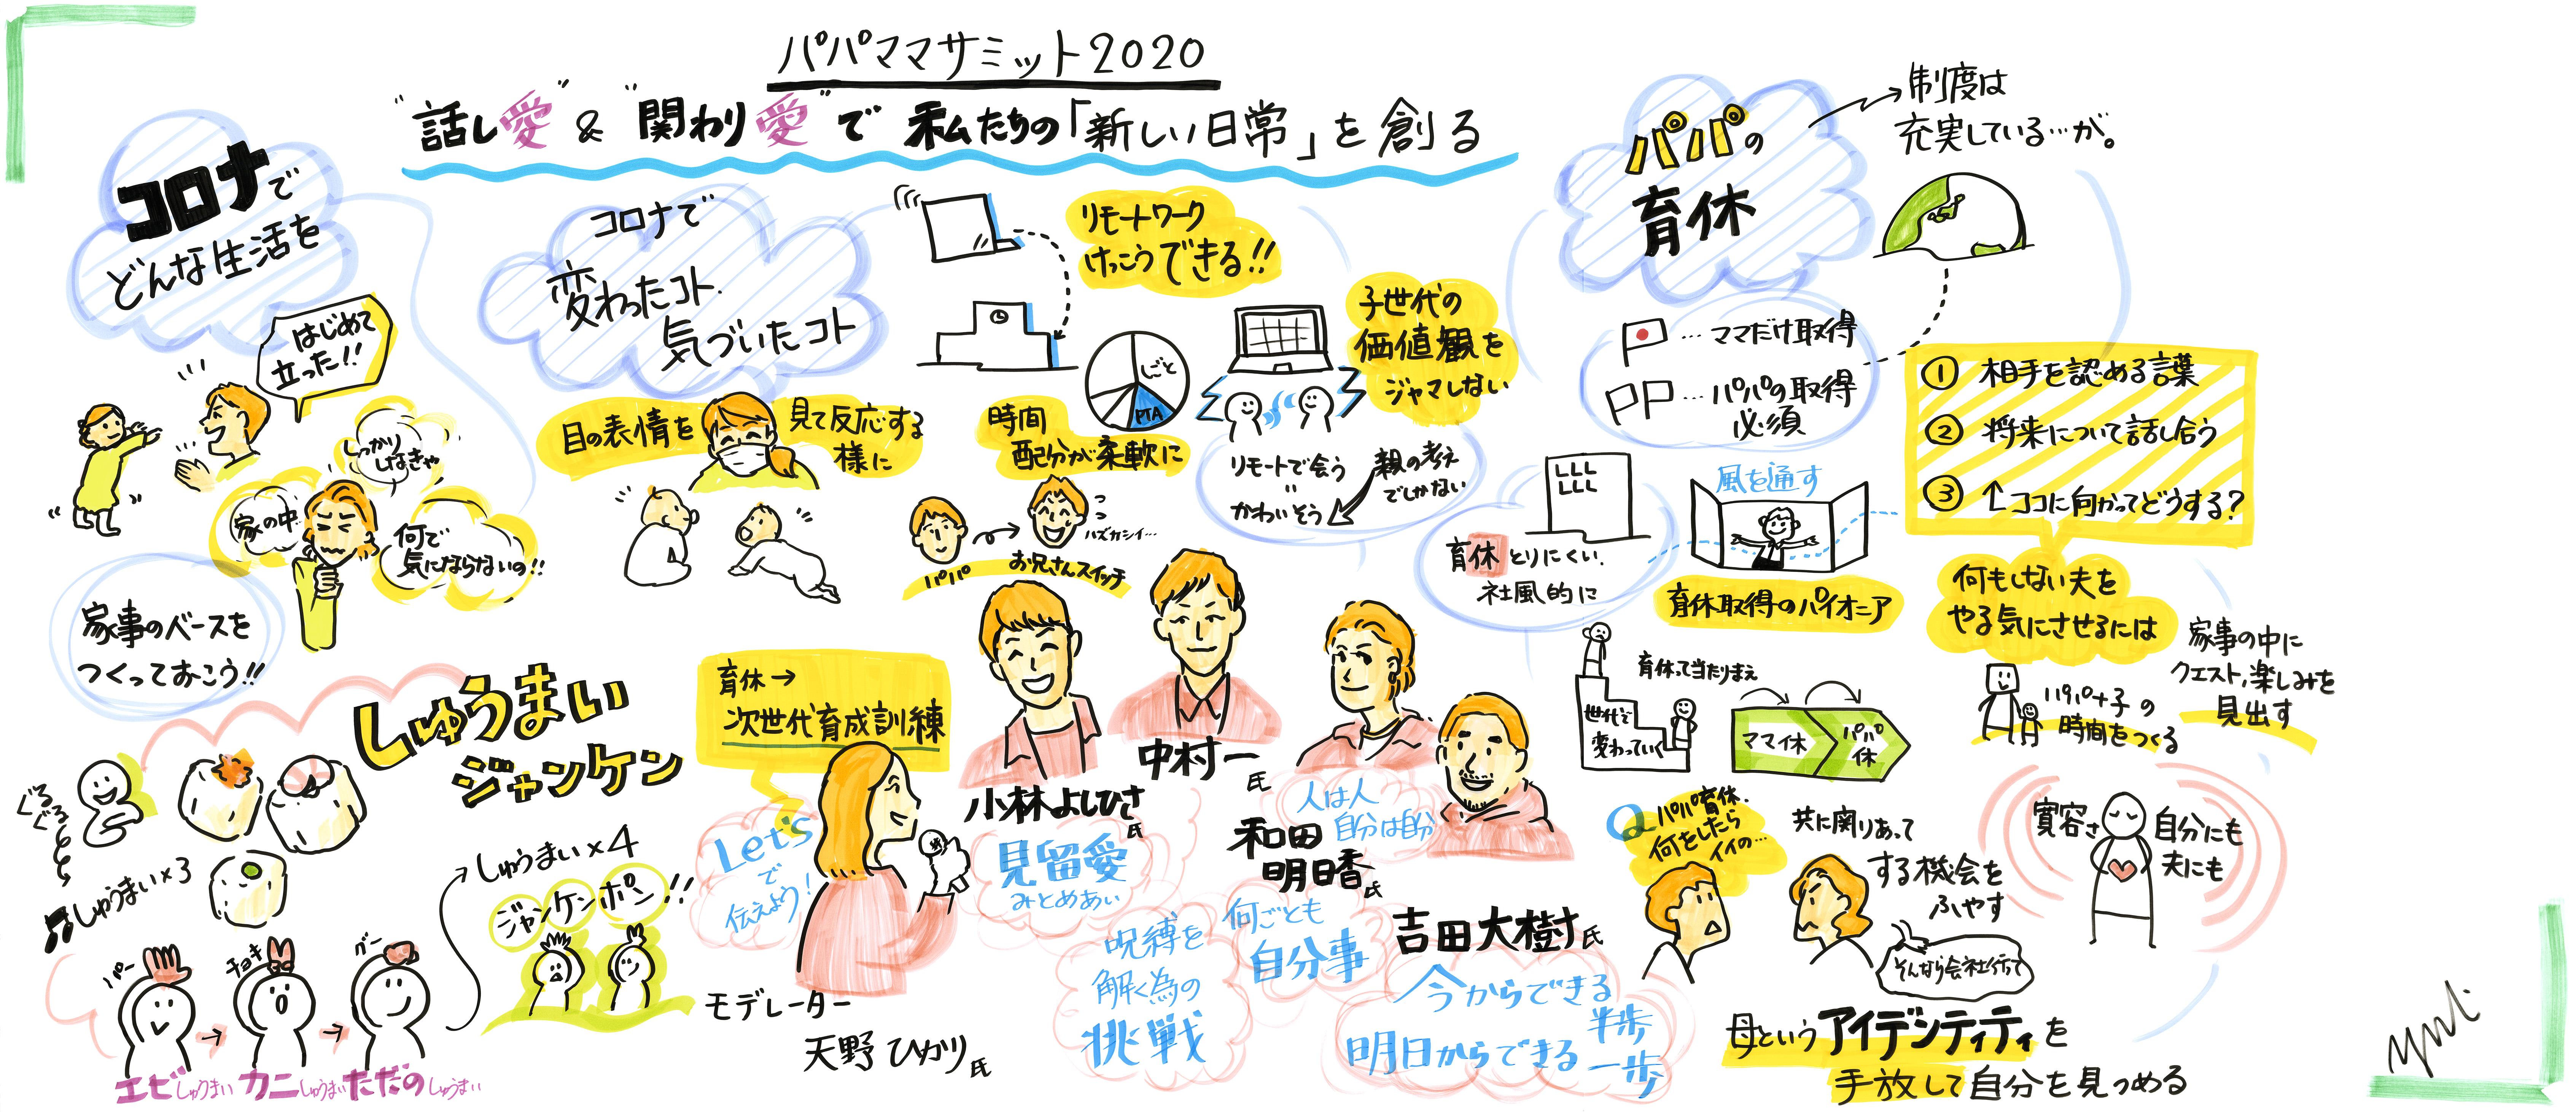 パパママサミット2020
"話し愛" & "関わり愛" で 私たちの「新しい日常」を創る
コロナで
どんな生活を
はじめて
立った!!
しっかり
しなきゃ
家の中…
何で
気にならないの!!
家事のベースを
つくっておこう!!
しゅうまい
ジャンケン
ぐる
ぐる
しゅうまい×3
パー
チョキ
グー
エビしゅうまい カニしゅうまい ただのしゅうまい
しゅうまい×4
ジャンケンポン!!
コロナで
変わったコト
気づいたコト
リモートワーク
けっこうできる!!
目の表情を
見て反応する
様に
しごと
PTA
時間
配分が柔軟に
パパ
お兄さんスイッチ
ハズカシイ…
子世代の
価値観を
ジャマしない
リモートで会う
=
かわいそう
親の考え
でしかない
育休→
次世代育成訓練
Let's
で
伝えよう!
モデレーター
天野ひかり氏
小林よしひさ氏
見留愛
みとめあい
中村一氏
呪縛を
解く為の
挑戦
和田
明日香氏
人は人
自分は自分
何ごとも
自分事
吉田大樹氏
今からできる半歩
明日からできる一歩
パパの
育休
制度は
充実している…が。
…ママだけ取得
…パパの取得
必須
LLL
LLL
育休とりにくい.
社風的に
風を通す
育休取得のパイオニア
育休って当たりまえ
世代で
変わっていく
ママ育休
パパ育休
① 相手を認める言葉
② 将来について話し合う
③ ↑ココに向かってどうする?
何もしない夫を
やる気にさせるには
パパ+子の
時間をつくる
家事の中に
クエスト,楽しみを
見出す
Q パパ育休.
何をしたら
イイの…
共に関りあって
する機会を
ふやす
そんなら会社行って
寛容さ
自分にも
夫にも
母というアイデンティティを
手放して自分を見つめる